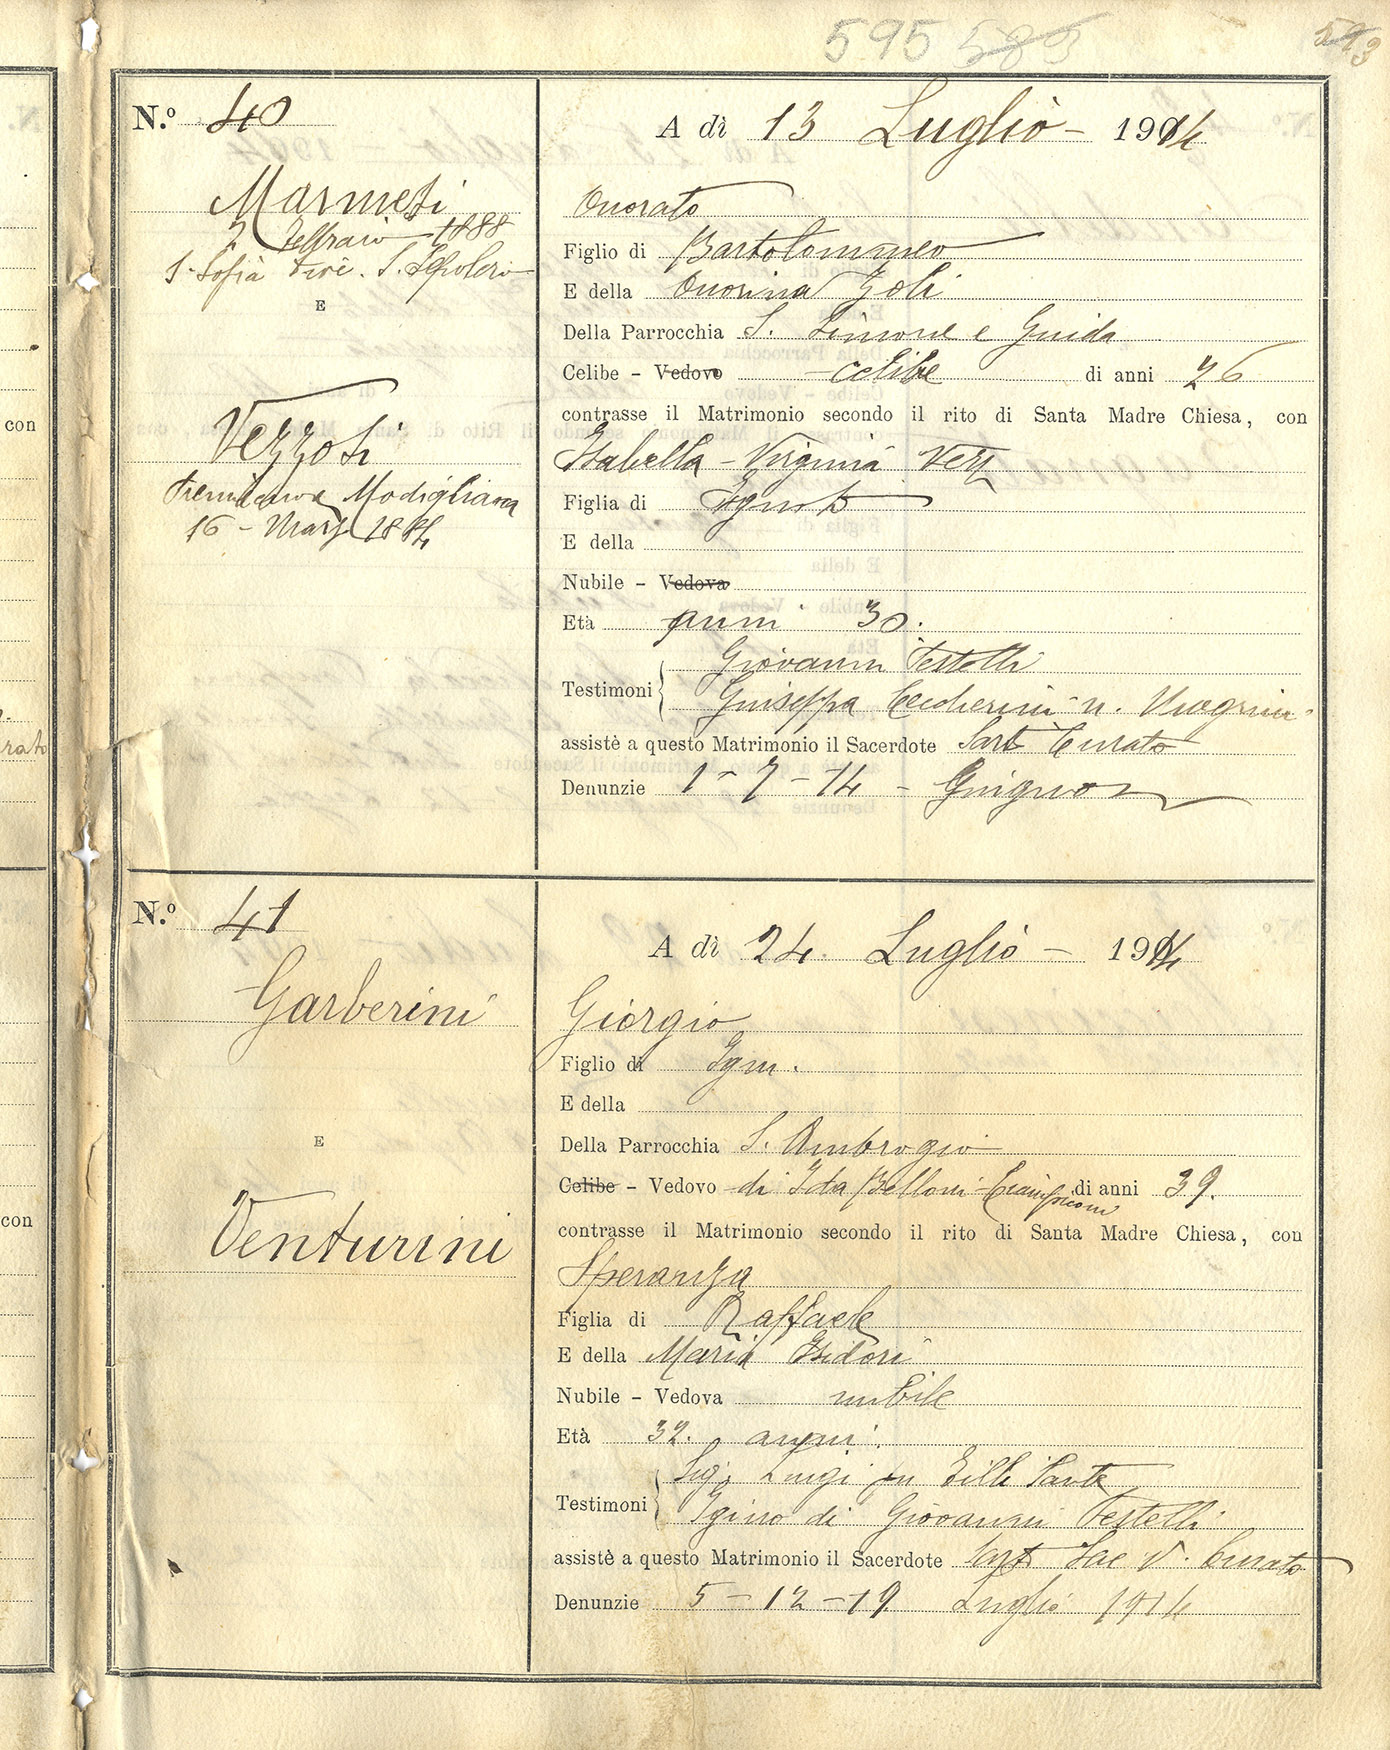 595 583
593
N.º 40
A dì 13 Luglio - 1914
Marmeti
2 Febbraio 1888
S. Sofia S. Sepolcro
E
Vezzosi
Modigliana
16 - Marzo 1884
Onorato
Figlio di Bartolommeo
E della Onorina Zoli
Della Parrocchia S. Simone e Guida
Celibe - Vedovo - celibe di anni 26
contrasse il Matrimonio secondo il rito di Santa Madre Chiesa, con
Isabella - Virginia Vezz
Figlia di Ignoti
E della
Nubile - Vedova
Età anni 30.
Testimoni Giovanni Testelli
Guiseppa Ceccherini n.
assistè a questo Matrimonio il Sacerdote Sarti Curato
Denunzie 1 - 7 - 14 - Guigno
N.º 41
A dì 24. Luglio - 1914
Garberini
E
Venturini
Giorgio
Figlio di Ign.
E della
Della Parrocchia S. Ambrogio
Celibe - Vedovo di Ida Belloni Ciamponi di anni 39.
contrasse il Matrimonio secondo il rito di Santa Madre Chiesa, con
Speranza
Figlia di Raffaele
E della Maria Isidori
Nubile - Vedova nubile
Età 32. anni.
Testimoni Sig. Luigi fu Sante
Igino di Giovanni Testelli
assistè a questo Matrimonio il Sacerdote Sarti Sac V. Curato
Denunzie 5 - 12 - 19 Luglio 1914
con
rato
con